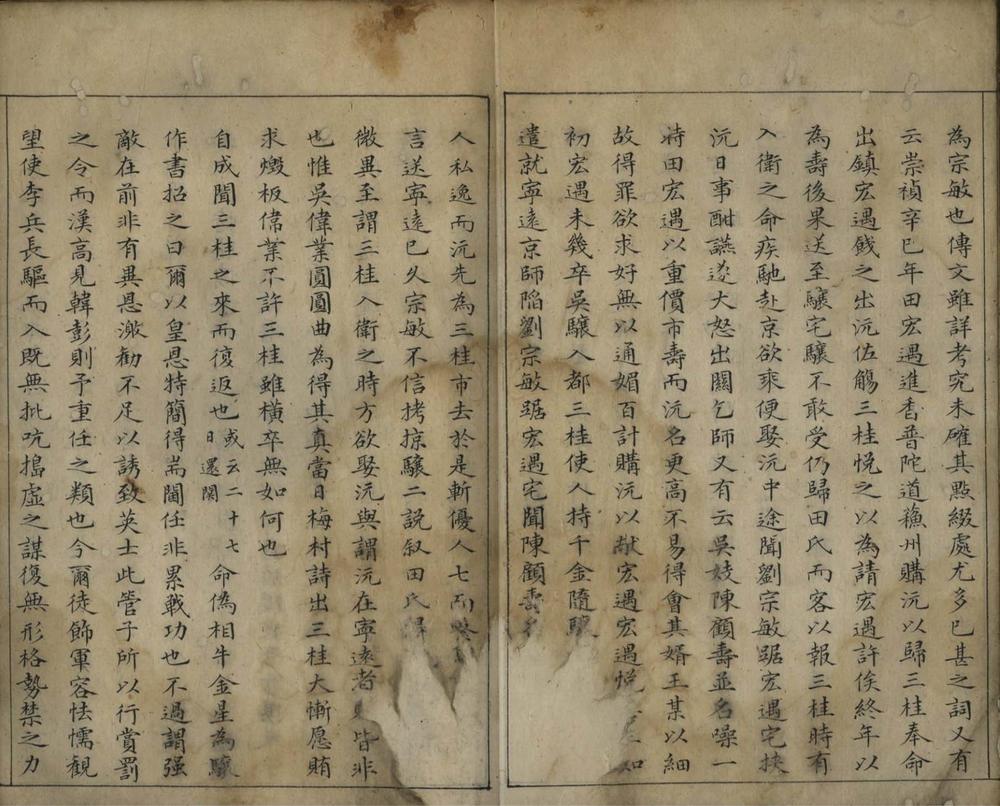 為宗敏也傳文雖詳考究未確其點綴處尤多已甚之詞又有
云崇禎辛巳年田宏遇進香普陀道蘓州購沅以歸三桂奉命
出鎮宏遇餞之出沅佐觴三桂悅之以為請宏遇許俟終年以
為壽後果送至驤宅驤不敢受仍歸田氏而客以報三桂時有
入衛之命疾馳赴京欲乘便娶沅中途聞劉宗敏踞宏遇宅挾
沅日事酣讌遂大怒出關乞師又有云吳妓陳顧壽並名噪一
時田宏遇以重價市壽而沅名更高不易得會其婿王某以細
故得罪欲求好無以通媚百計購沅以献宏遇宏遇悅
初宏遇未幾卒吳驤入都三桂使人持千金隨驤
遣就寧遠京師陷劉宗敏踞宏遇宅聞陳顧壽名
人私逸而沅先為三桂市去於是斬優人七而
言送寧遠已久宗敏不信拷掠驤二說叙田氏
微異至謂三桂入衛之時方欲娶沅與謂沅在寧遠者皆非
也惟吳偉業圓圓曲為得其真當日梅村詩出三桂大慚愿賄
求燬板偉業不許三桂雖橫卒無如何也
自成聞三桂之來而復返也或云二十七日還関命偽相牛金星為驤
作書招之曰爾以皇恩特簡得耑閫任非累戰功也不過謂强
敵在前非有異恩激勸不足以誘致英士此管子所以行賞罰
之令而漢高見韓彭則予重任之類也今爾徒飾軍容怯懦観
望使李兵長驅而入既無批吭搗虛之謀復無形格勢禁之力